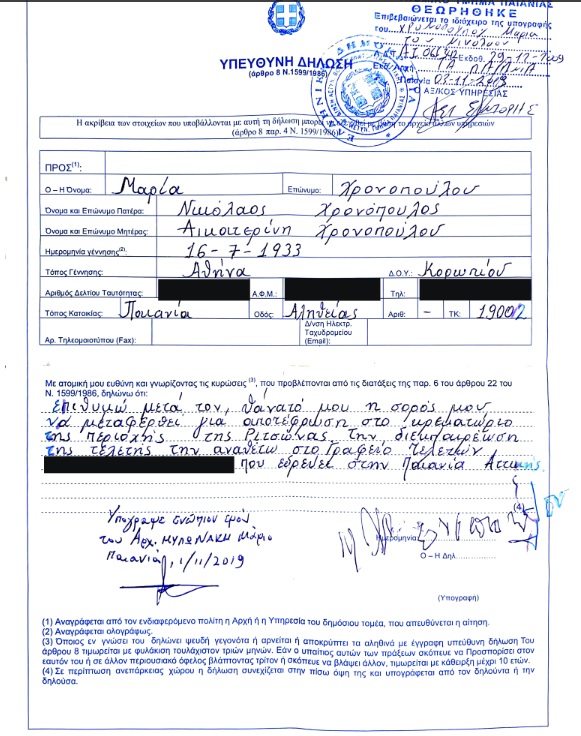 ΤΜΗΜΑ ΠΑΙΑΝΙΑΣ
ΘΕΩΡΗΘΗΚΕ
Επιβεβαιώνεται το ιδιόχειρο της υπογραφής
του Χρονοπούλου Μαρία
του Νικολάου
Α.Δ.Τ.
Παιανία 01-11-2019
ΑΞ/ΚΟΣ ΥΠΗΡΕΣΙΑΣ
ΥΠΕΥΘΥΝΗ ΔΗΛΩΣΗ
(άρθρο 8 Ν.1599/1986)
Η ακρίβεια των στοιχείων που υποβάλλονται με αυτή τη δήλωση μπορεί να ελεγχθεί με βάση το αρχείο άλλων υπηρεσιών
(άρθρο 8 παρ. 4 Ν. 1599/1986)
ΠΡΟΣ(1):
Ο – Η Όνομα: Μαρία Επώνυμο: Χρονοπούλου
Όνομα και Επώνυμο Πατέρα: Νικόλαος Χρονόπουλος
Όνομα και Επώνυμο Μητέρας: Αικατερίνη Χρονοπούλου
Ημερομηνία γέννησης(2): 16-7-1933
Τόπος Γέννησης: Αθήνα Δ.Ο.Υ.: Κορωπίου
Αριθμός Δελτίου Ταυτότητας: Α.Φ.Μ.: Τηλ:
Τόπος Κατοικίας: Παιανία Οδός: Αληθείας Αριθ: - ΤΚ: 19002
Αρ. Τηλεομοιοτύπου (Fax): Δ/νση Ηλεκτρ. Ταχυδρομείου (Email):
Με ατομική μου ευθύνη και γνωρίζοντας τις κυρώσεις (3), που προβλέπονται από τις διατάξεις της παρ. 6 του άρθρου 22 του
Ν. 1599/1986, δηλώνω ότι:
Επιθυμώ μετά τον θάνατό μου η σορός μου
να μεταφερθεί για αποτέφρωση στο κρεματώριο
της περιοχής της Ριτσώνας. την διεκπαιρέωση
της τελετής την αναθέτω στο Γραφείο Τελετών
που εδρεύει στην Παιανία Αττικής
(4)
Υπόγραψε ενώπιον εμού
του Αρχ. ΜΥΛΩΝΑΚΗ Μάριο
Παιανία, 1/11/2019
Ημερομηνία
Ο – Η Δηλ.
(Υπογραφή)
(1) Αναγράφεται από τον ενδιαφερόμενο πολίτη η Αρχή ή η Υπηρεσία του δημόσιου τομέα, που απευθύνεται η αίτηση.
(2) Αναγράφεται ολογράφως.
(3) Όποιος εν γνώσει του δηλώνει ψευδή γεγονότα ή αρνείται ή αποκρύπτει τα αληθινά με έγγραφη υπεύθυνη δήλωση Του
άρθρου 8 τιμωρείται με φυλάκιση τουλάχιστον τριών μηνών. Εάν ο υπαίτιος αυτών των πράξεων σκόπευε να Προσπορίσει στον
εαυτόν του ή σε άλλον περιουσιακό όφελος βλάπτοντας τρίτον ή σκόπευε να βλάψει άλλον, τιμωρείται με κάθειρξη μέχρι 10 ετών.
(4) Σε περίπτωση ανεπάρκειας χώρου η δήλωση συνεχίζεται στην πίσω όψη της και υπογράφεται από τον δηλούντα ή την
δηλούσα.